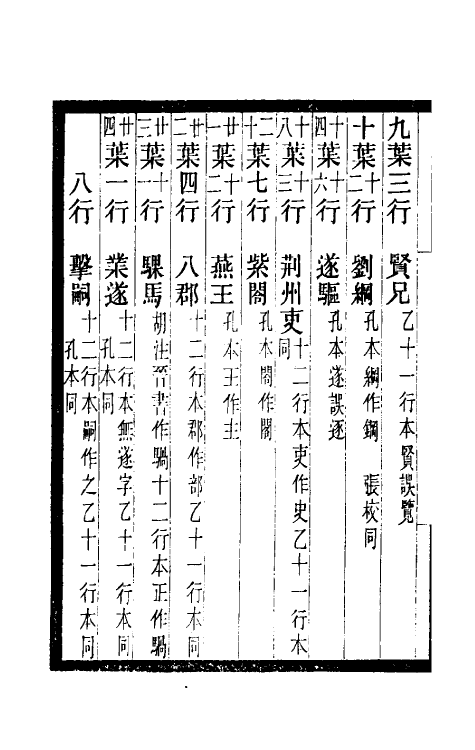 九葉三行　賢兄　乙十一行本賢誤覽
十葉十二行　劉綱　孔本綱作鋼　張校同
十四葉十六行　遂驅　孔本遂誤逐
十八葉十三行　荆州吏　十二行本吏作史乙十一行本同
二十葉七行　紫閤　孔本閤作閣
廿一葉十二行　燕王　孔本王作主
廿二葉四行　八郡　十二行本郡作部乙十一行本同孔本同
廿三葉十一行　騾馬　胡注晉書作騧十二行本正作騧
廿四葉一行　業遂　十二行本無遂字乙十一行本同孔本同
八行　擊嗣　十二行本嗣作之乙十一行本同孔本同